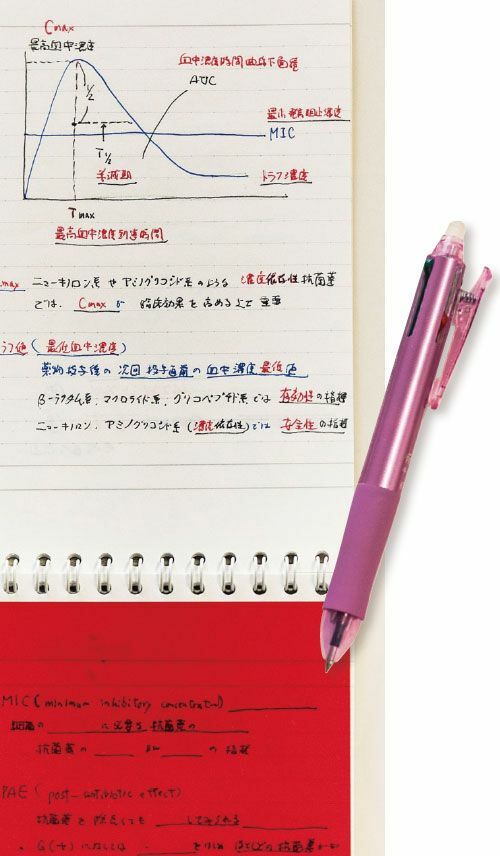 Cmax
最高血中濃度
血中濃度時間曲線下面積
AUC
1/2
最小発育阻止濃度
MIC
T1/2
半減期
トラフ濃度
Tmax
最高血中濃度到達時間
max ニューキノロン系やアミノグリコシド系のような 濃度依存性抗菌薬
では、Cmaxが 臨床効果を高める上で重要
ラフ値(最低血中濃度)
薬物投与後の次回投与直前の血中濃度最低値
β-ラクタム系、マクロライド系、グリコペプチド系では 有効性の指標
ニューキノロン、アミノグリコシド系(濃度依存性)では 安全性の指標
MIC(minimum inhibitory concentration)
細菌の に必要な抗菌薬の
抗菌薬の の指標
PAE(post-antibiotic effect)
抗菌薬を除去しても
G(+)に対しては ほとんどの抗菌薬が